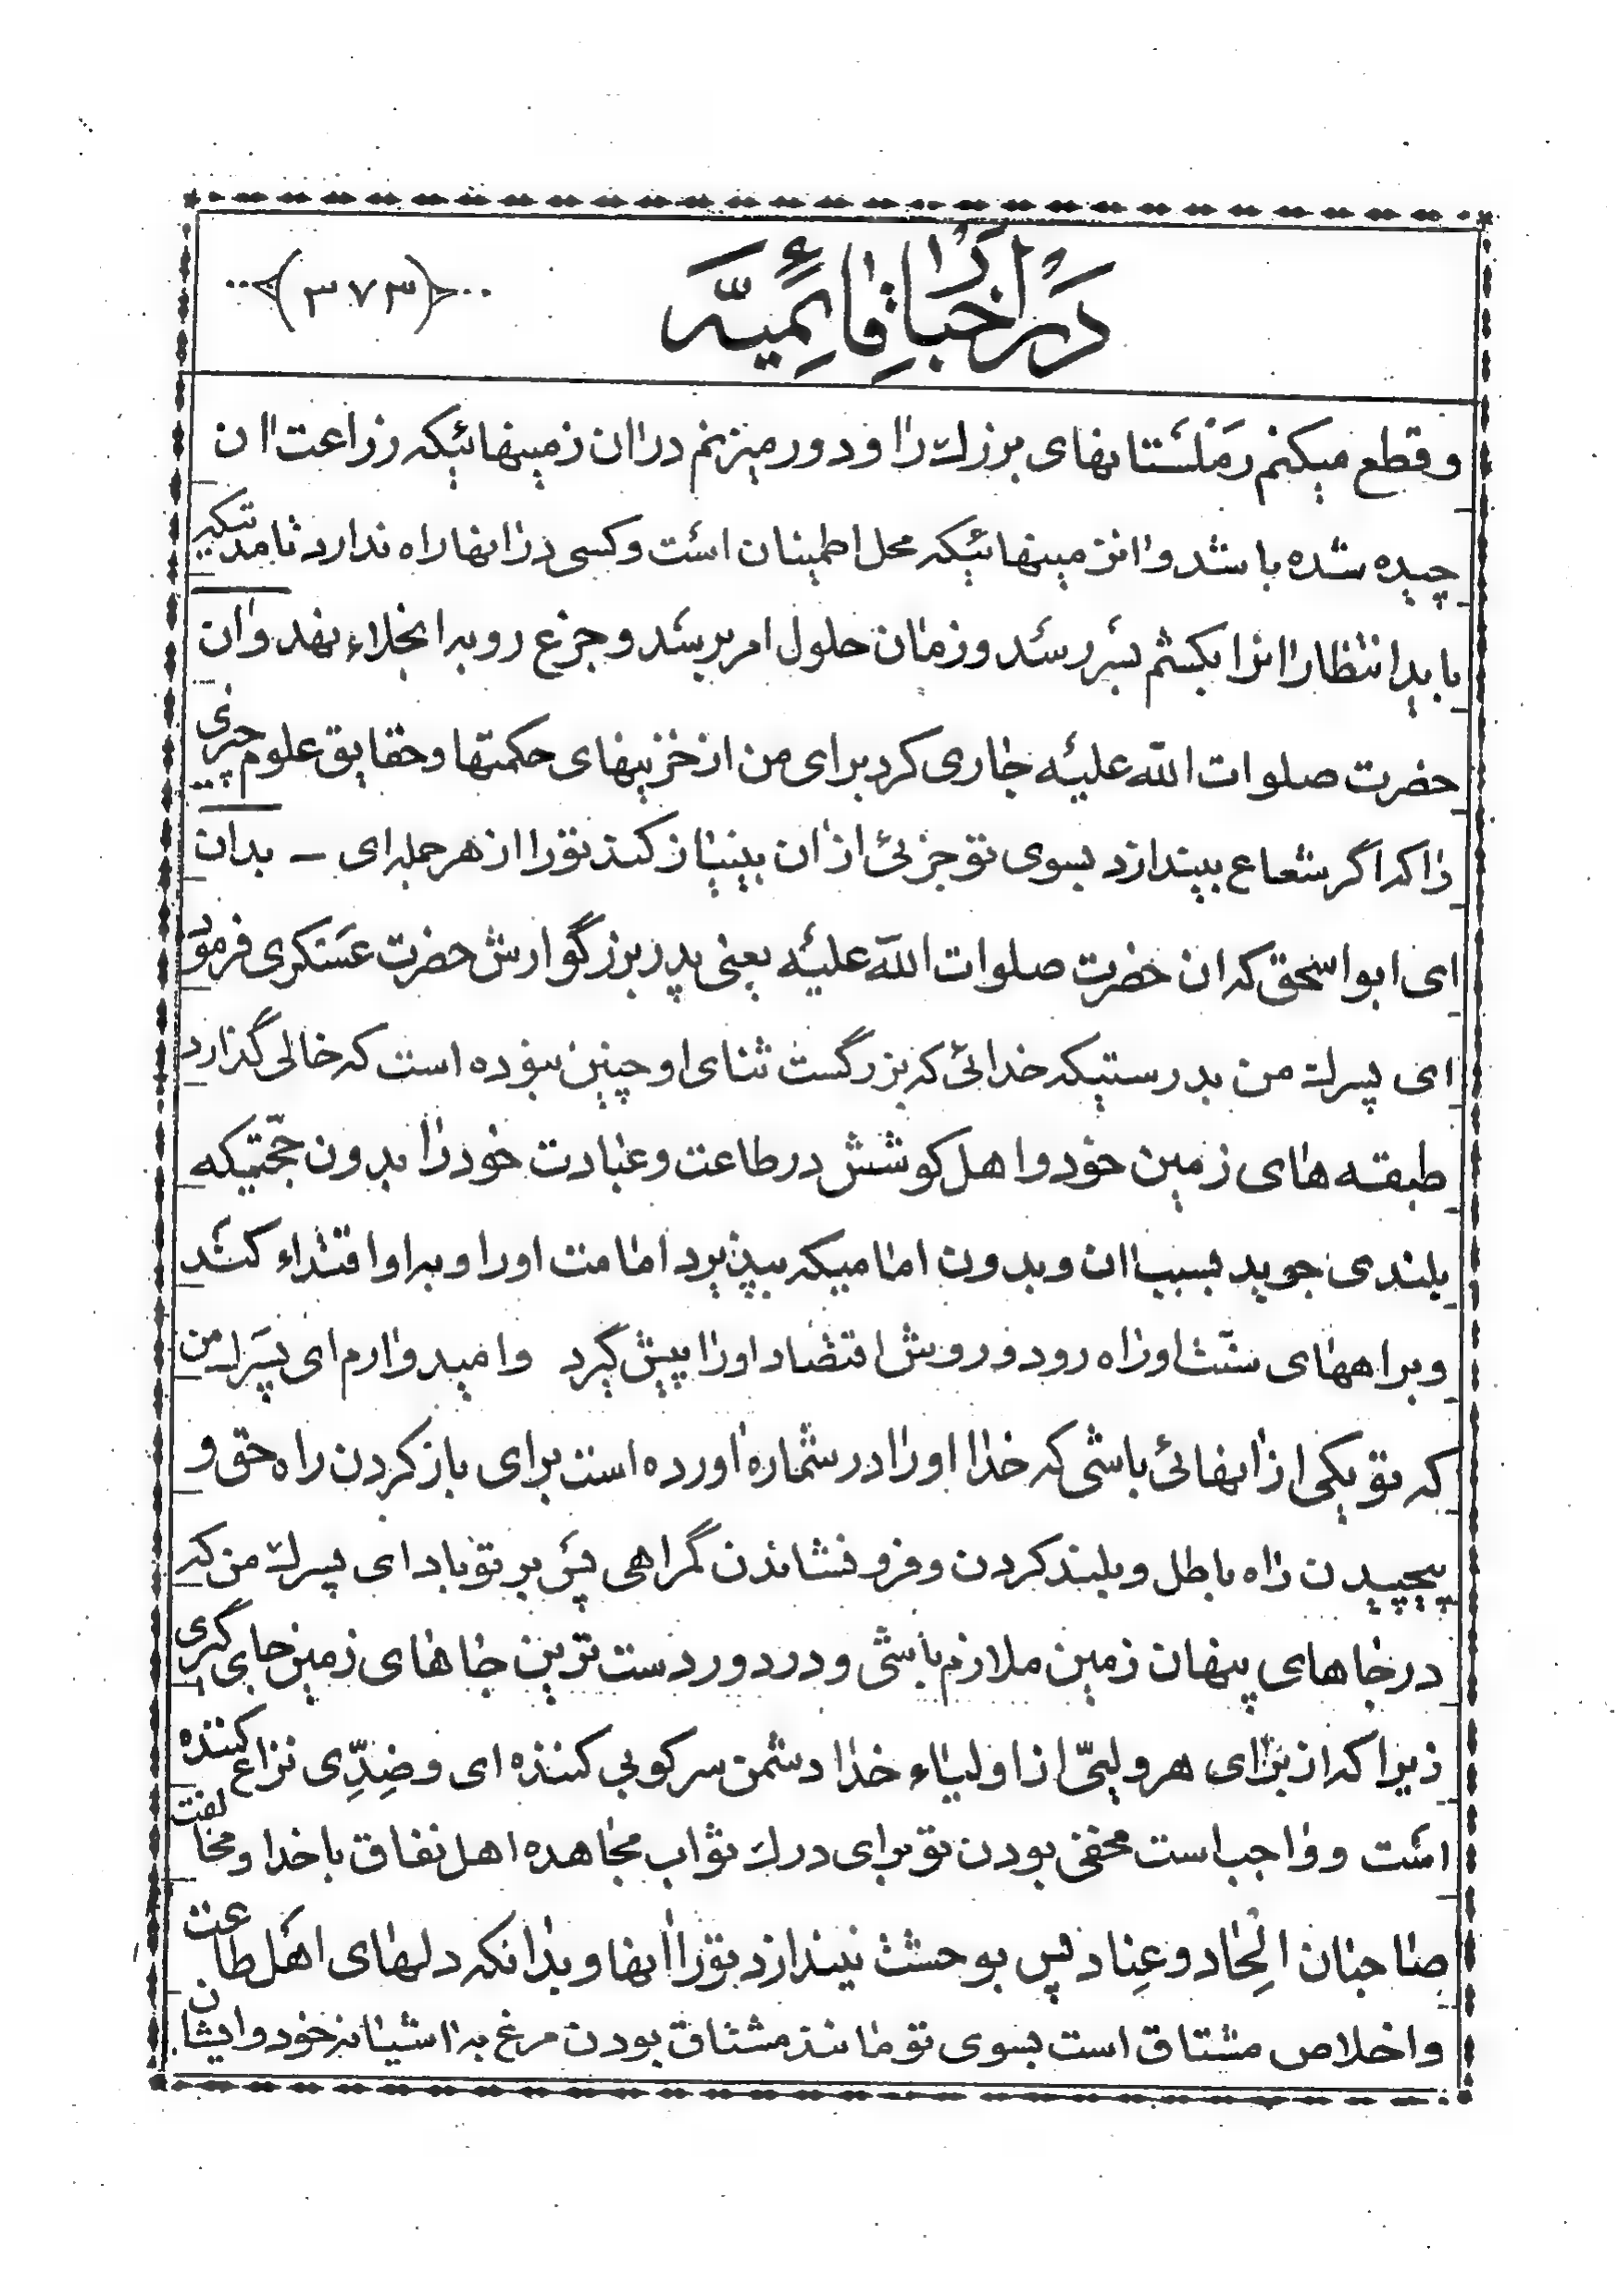 در اخبار قائمیّه
(۳۷۳)
و قطع میکنم رمَلستانهای بزرك را و دور میزنم در ان زمینهائیکه زراعت ان
چیده شده باشد و از زمینهائیکه محل اطمینان است و کسی در انها راه ندارد تا مدتیکه
باید انتظار انرا بکشم بسر رسد و زمان حلول امر برسد و جزع رو به انجلاء نهد و ان
حضرت صلوات الله علیه جاری کرد برای من از خزینهای حکمتها و حقایق علوم چیزی
را که اگر شعاع بیندازد بسوی تو جزئی از ان بینیاز کند تو را از هر جمله ای ــ بدان
ای ابواسحق که ان حضرت صلوات الله علیه یعنی پدر بزرگوارش حضرت عسکری فرمود
ای پسرك من بدرستیکه خدائی که بزرگست ثنای او چنین نبوده است که خالی گذارد
طبقه های زمین خود و اهل کوشش در طاعت و عبادت خود را بدون حجّتیکه
بلندی جوید بسبب ان و بدون امامیکه بپذیرد امامت او را و به او اقتداء کند
و براههای سنّت او راه رود و روش اقتضاد او را پیش گیرد و امیدوارم ای پسرك من
که تو یکی از انهائی باشی که خدا او را در شماره اورده است برای باز کردن راه حق و
پیچیدن راه باطل و بلند کردن و فرو نشاندن گمراهی پس بر تو باد ای پسرك من که
در جاهای پنهان زمین ملازم باشی و در دور دست ترین جاهای زمین جای گیری
زیرا که از برای هر ولیّی از اولیاء خدا دشمن سرکوبی کننده ای و ضِدِّی نزاع کننده
است و واجب است مخفی بودن تو برای درك ثواب مجاهده اهل نفاق با خدا و مخالفت
صاحبان اِلحٰاد و عِناد پس بوحشت نیندازد تو را انها و بدانکه دلهای اهل طاعت
و اخلاص مشتاق است بسوی تو مانند مشتاق بودن مرغ به اشیانه خود و ایشان